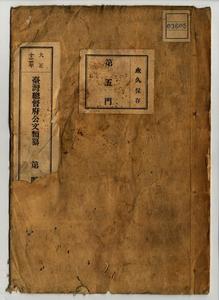 03605
永久保存
第五門
大正
十二年
臺灣總督府公文類纂 第